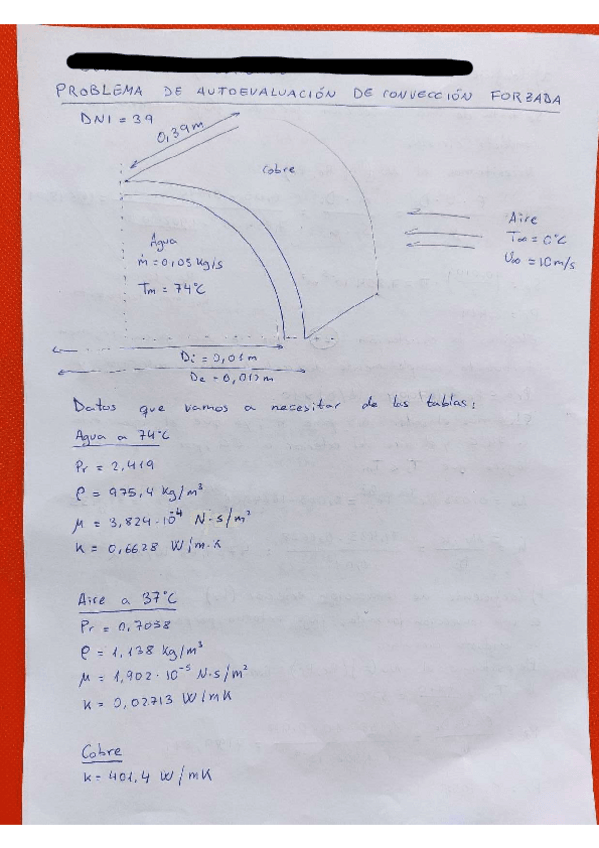 PROBLEMA DE AUTOEVALUACIÓN DE CONVECCIÓN FORZADA
DNI = 39
0,39m
Cobre
Agua
ṁ = 0,05 Kg/s
Tm = 74°C
Aire
T∞ = 0°C
U∞ = 10 m/s
Di = 0,01 m
De = 0,012 m
Datos que vamos a necesitar de las tablas:
Agua a 74°C
Pr = 2,419
ρ = 975,4 Kg/m³
μ = 3,824·10⁻⁴ N·s/m²
k = 0,6628 W/m·K
Aire a 37°C
Pr = 0,7038
ρ = 1,138 Kg/m³
μ = 1,902·10⁻⁵ N·s/m²
k = 0,02713 W/mK
Cobre
k = 401,4 W/mK